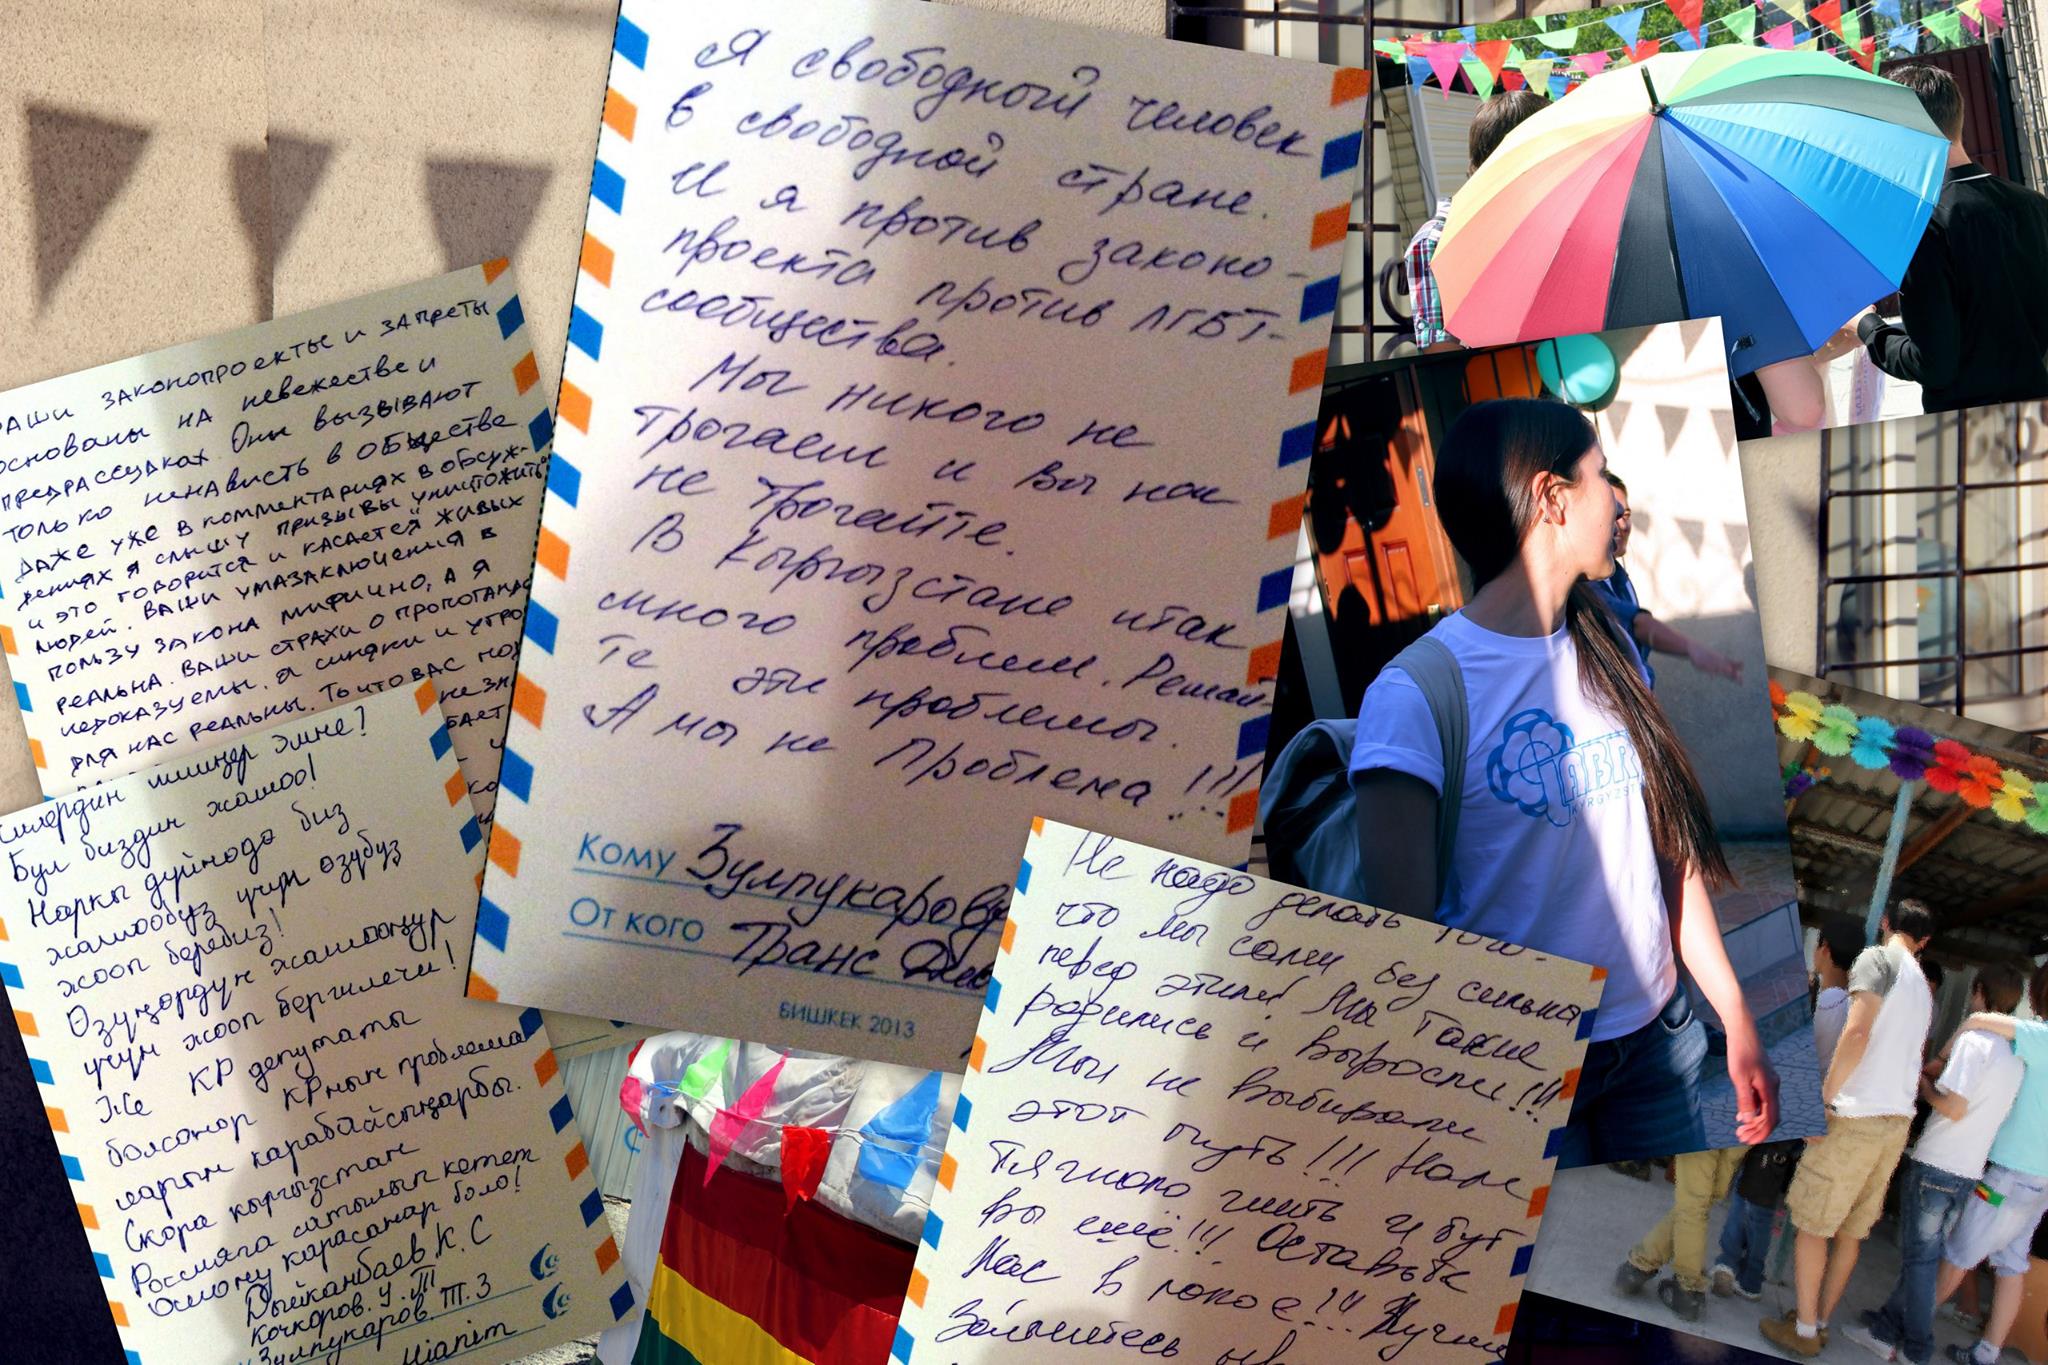 Я свободный человек
в свободной стране.
И я против законо-
проекта против ЛГБТ-
сообщества.
Мы никого не
трогаем и вы нас
не трогайте.
В Кыргызстане итак
много проблем. Решай-
те эти проблемы.
А мы не Проблема!!!
Кому Зулпукарову
От кого Транс
БИШКЕК 2013
ваши законопроекты и запреты
основаны на невежестве и
предрассудках. Они вызывают
только ненависть в обществе
даже уже в комментариях в обсуж-
дениях я слышу призывы "уничтожить"
и это говорится и касается живых
людей. Ваши умазаключения в
пользу закона мифично, а я
реальна. Ваши страхи о пропоганде
недоказуемы, а синяки и угро
для нас реальны. То что вас
Силердин ишиңер эмне?
Бул биздин жашоо!
Наркы дүйнөдө биз
жашообуз үчүн өзүбүз
жооп беребиз!
Өзүңөрдүн жашооңур
үчүн жооп бергилечи!
Же КР депутаты
болсоңор КРнын проблема
ларын карабайсыңарбы.
Скоро кыргызстан
Россияга сатылып кетет
Ошону карасаңар боло!
Дыйканбаев К. С
Кочкоров. У. Т
Зулпукаров. Т. З
Не надо делать того
что мы сами без сильны
перед этим! Мы такие
родились и выросли!!!
Мы не выбирали
этот путь!!! Нам
тяжело жить и тут
вы ещё!!! Оставьте
нас в покое!!! Лучше
займитесь
LABR
KYRGYZST